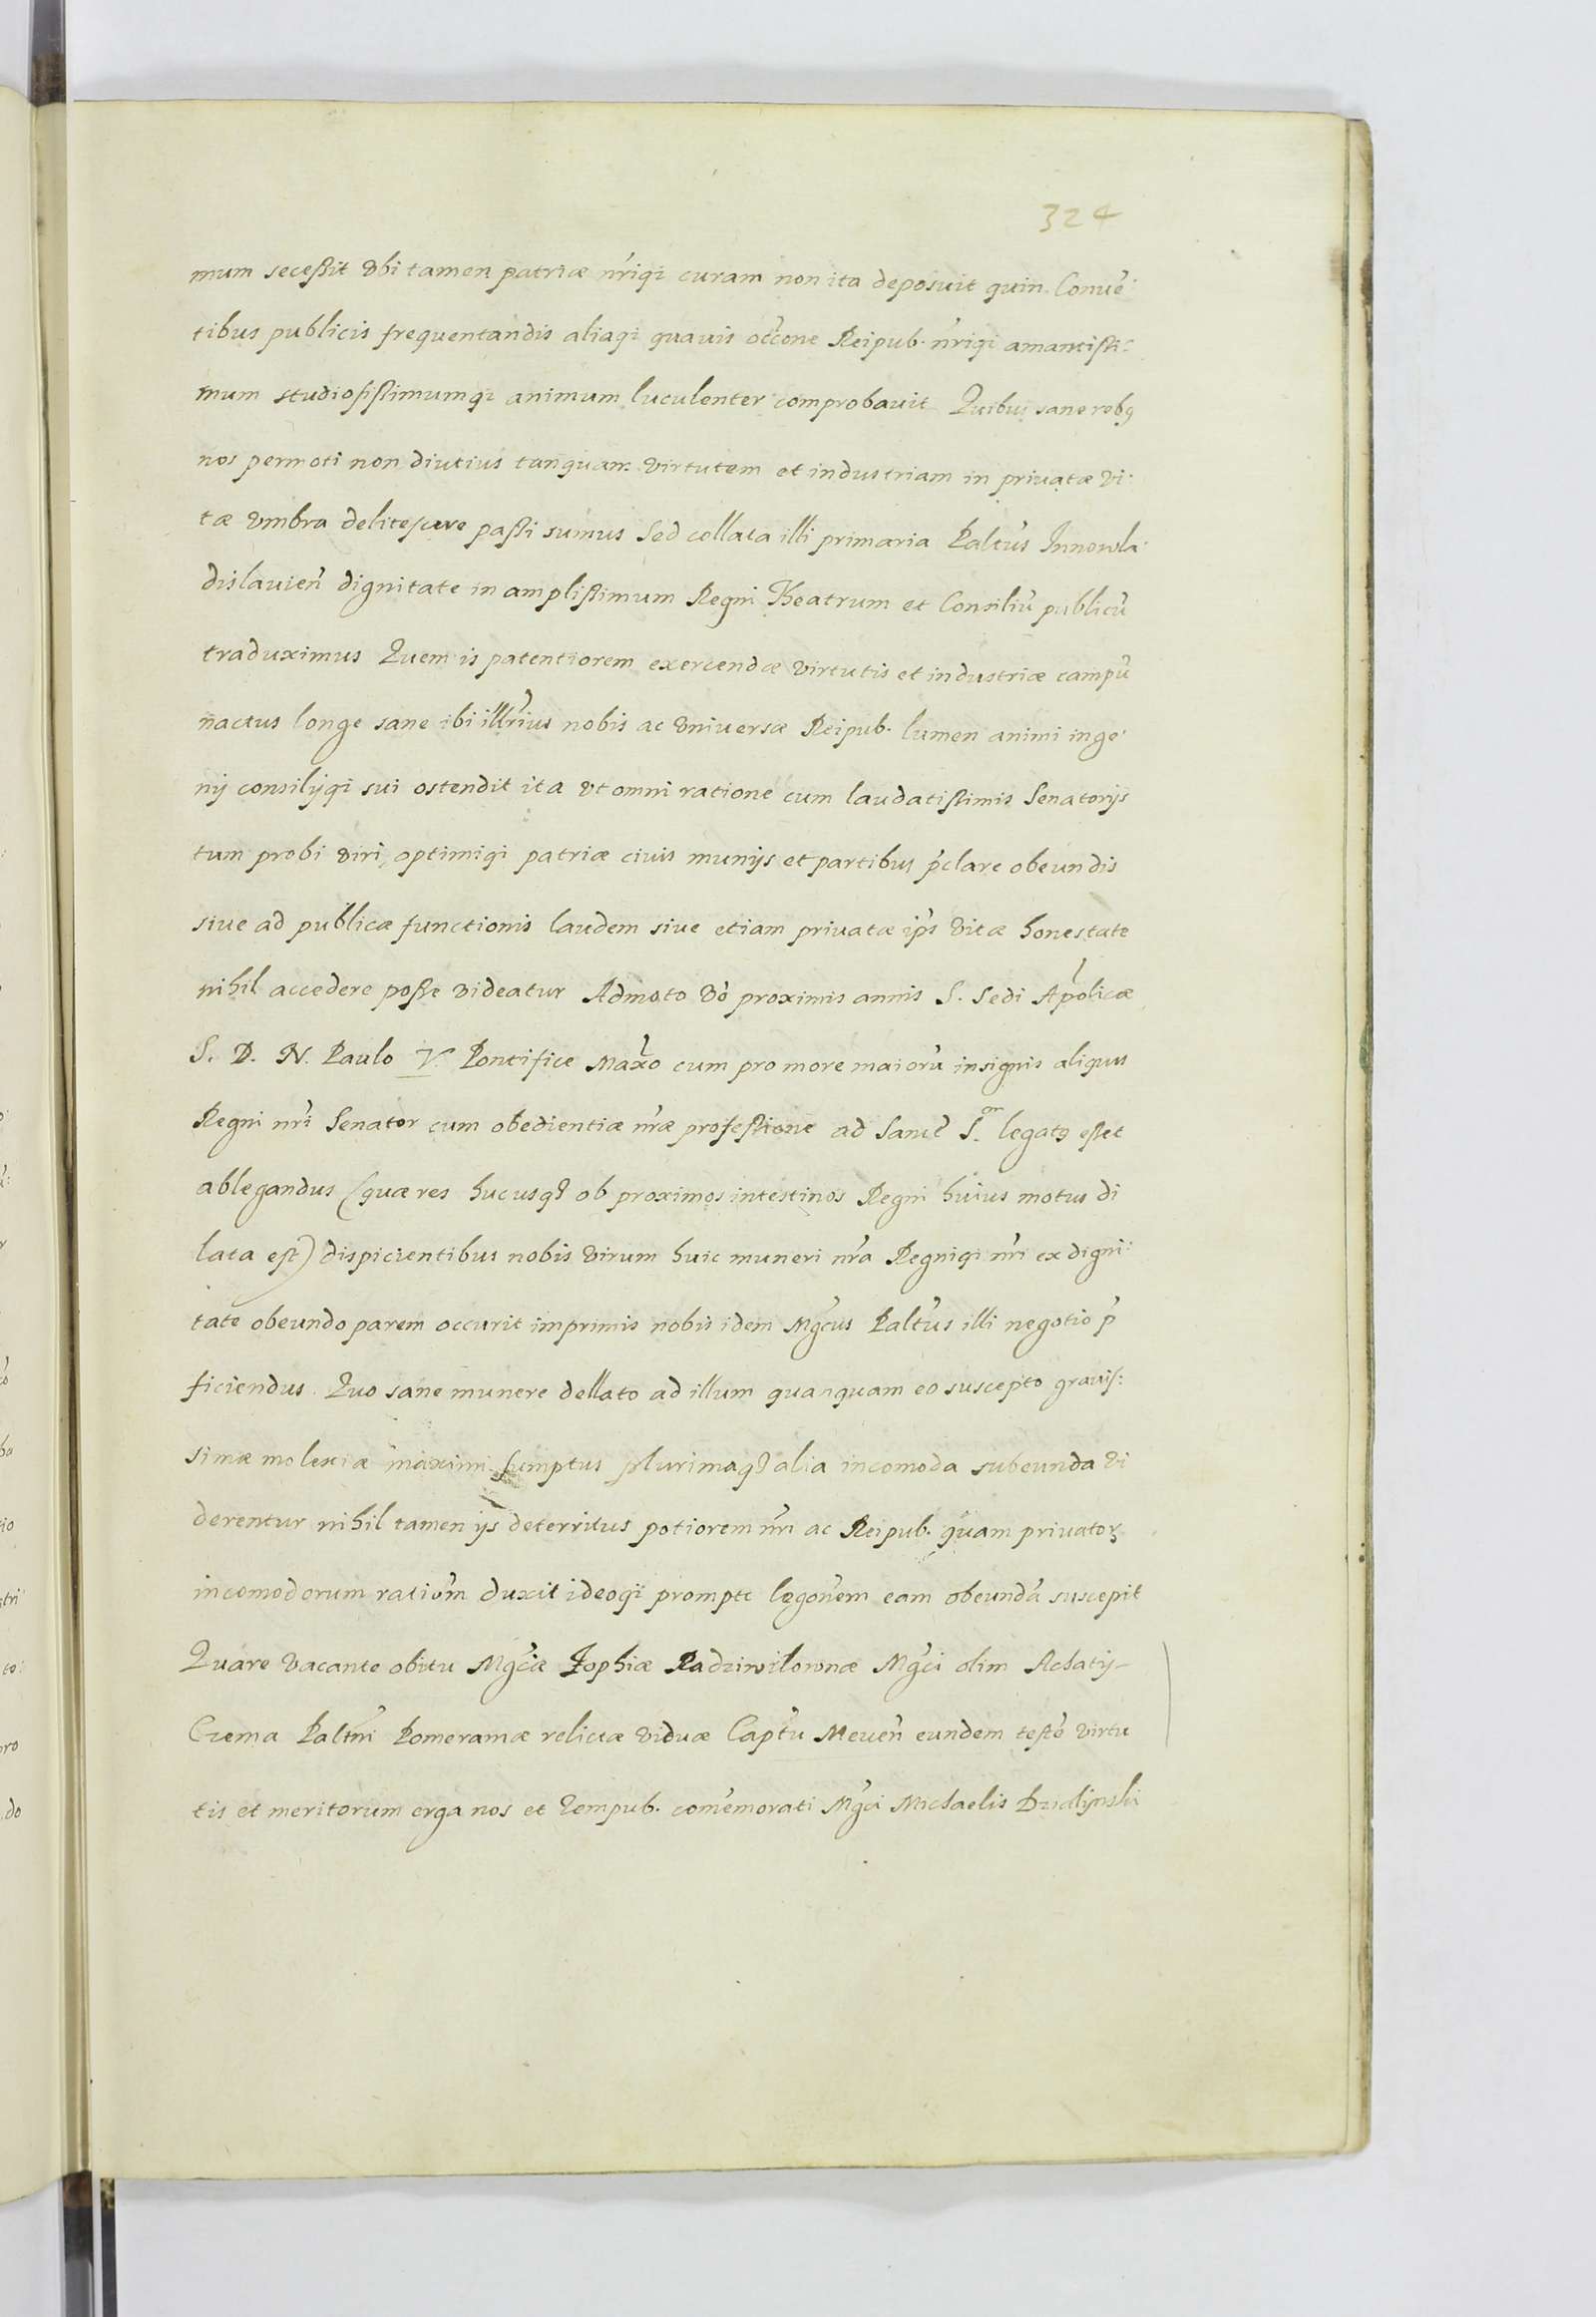 324
mum secessit vbi tamen patriæ nriqi curam non ita deposuit quin Conue-
tibus publicis frequentandis aliaqi quauis occone Reipub. nriqi amantissi:
mum studiosissimumqi animum luculenter comprobauit Quibus sane rebq
nos permoti non diutius tanquam virtutem et industriam in priuatæ vi-
tæ vmbra delitescere passi sumus Sed collata illi primaria Paltus Innowla-
dislauien dignitate in amplissimum Regni Theatrum et Consiliũ publicũ
traduximus Quem is patentiorem exercendæ virtutis et industriæ campũ
nactus longe sane ibi illrius nobis ac vniuersæ Reipub. lumen animi inge-
nij consilijqi sui ostendit ita vt omni ratione cum laudatissimis Senatorijs
tum probi viri optimiqi patriæ ciuis munijs et partibus pclare obeundis
siue ad publicæ functionis laudem siue etiam priuatæ ips vitæ honestate
nihil accedere posse videatur Admoto vo proximis annis S. Sedi Aplicæ
S. D. N. Paulo V. Pontifice Maxo cum pro more maiorũ insignis aliquis
Regni nri Senator cum obedientiæ nræ professione ad Sanct S. or legatq esset
ablegandus (quæ res hucusq ob proximos intestinos Regni huius motus di
lata est) dispicientibus nobis virum huic muneri nra Regniqi nri ex digni-
tate obeundo parem occurit imprimis nobis idem Mgcus Paltus illi negotio p
ficiendus Quo sane munere dellato ad illum quanquam eo suscepto grauis:
simæ molestiæ maximi sumptus plurimaq alia incomoda subeunda vi
derentur nihil tamen ijs deterritus potiorem nri ac Reipub. quam priuator
incomodorum rationm duxit ideoqi prompte legonem eam obeundã suscepit
Quare vacante obitu Mgcæ Zophiæ Radziwilownæ Mgci olim Achatij
Czema Paltni Pomeraniæ relictæ viduæ Captu Meuen eundem teste virtu
tis et meritorum erga nos et Rempub. comemorati Mgci Michaelis Dzialijnski